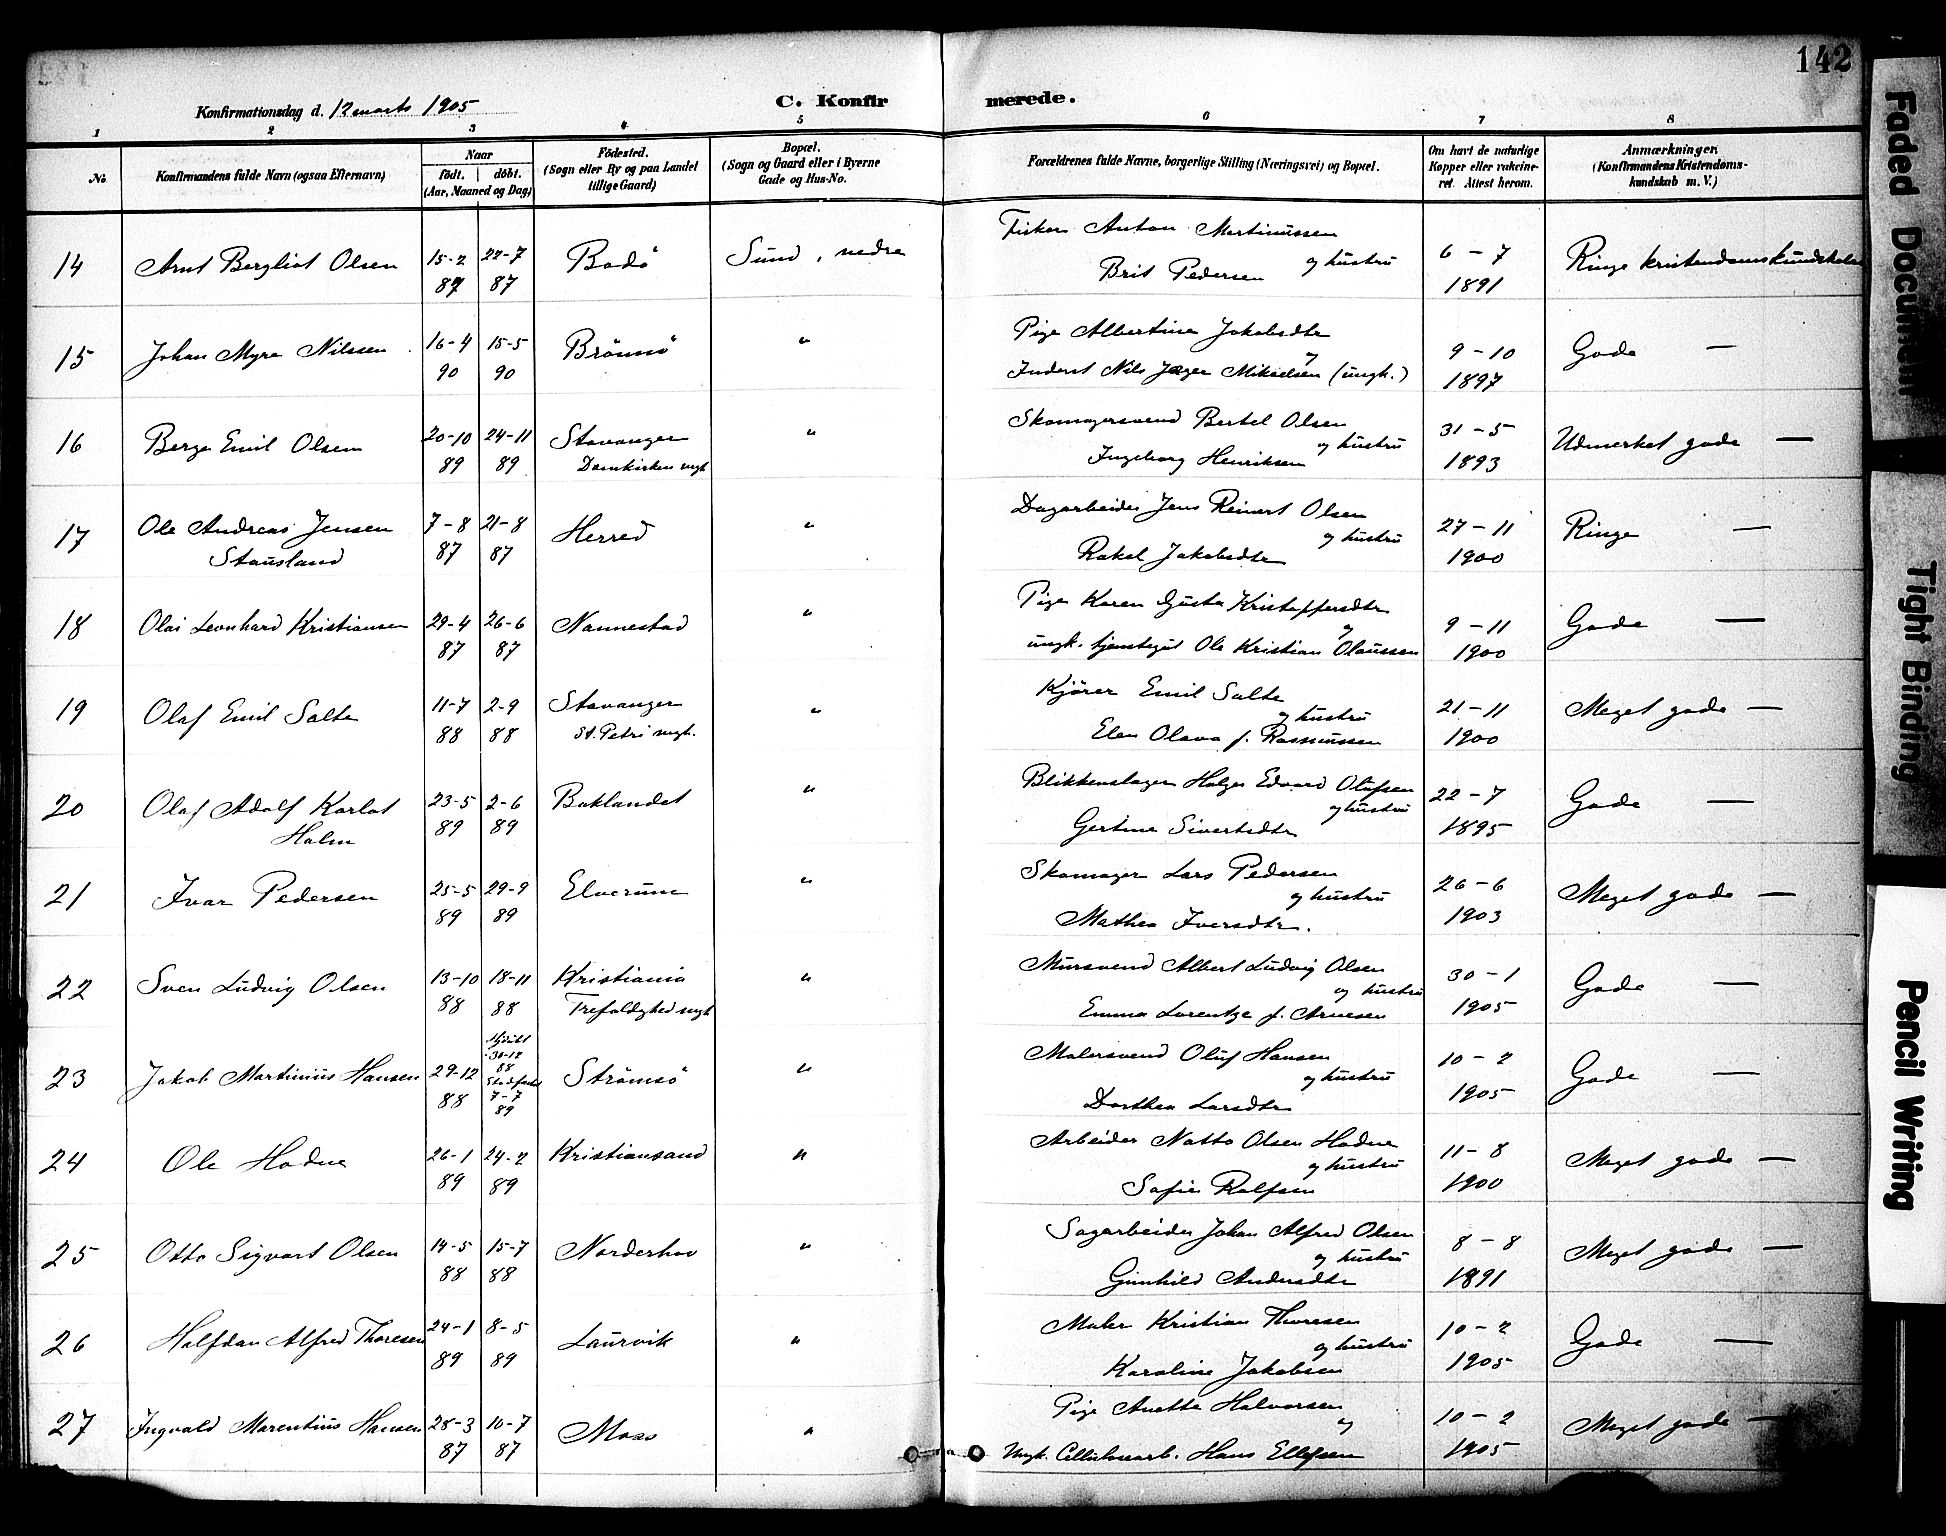 142
Konfirmationsdag d. 12 marts 1905
C. Konfirmerede.
1 2 3 4 5 6 7 8
No. Konfirmandens fulde Navn (ogsaa Efternavn) Naar født. døbt. (Aar, Maaned og Dag) Fødested. (Sogn eller By og paa Landet tillige Gaard) Bopæl. (Sogn og Gaard eller i Byerne Gade og Hus-No. Forældrenes fulde Navne, borgerlige Stilling (Næringsvei) og Bopæl. Om havt de naturlige Kopper eller vakcineret. Attest herom. Anmærkninger. (Konfirmandens Kristendomskundskab m. V.)
14 Arnt Bergliot Olsen 15-2 87 22-7 87 Bodö Sund, nedre Fisker Anton Martinussen og hustru Brit Pedersen 6-7 1891 Ringe kristendomskundskab
15 Johan Myre Nilssen 16-4 90 15-5 90 Brönnö " Pige Albertine Jakobsdtr og Inderst Nils Jæger Mikaelsen (ungk.) 9-10 1897 Gode —
16 Berge Emil Olsen 20-10 89 24-11 89 Stavanger Domkirken mgh " Skomagersvend Bertel Olsen og hustru Ingeborg Henriksen 31-5 1893 Udmerket gode —
17 Ole Andreas Jensen Stausland 7-8 87 21-8 87 Herred " Dagarbeider Jens Reinert Olsen og hustru Rakel Jakobsdtr 27-11 1900 Ringe —
18 Olai Leonhard Kristiansen 29-4 87 26-6 87 Nannestad " Pige Karen Gusta Kristoffersdtr og ungk. tjenstegut Ole Kristian Olaussen 9-11 1900 Gode —
19 Olaf Emil Salte 11-7 88 2-9 88 Stavanger St. Petri mgh. " Kjörer Emil Salte og hustru Elen Olava f. Rasmussen 21-11 1900 Meget gode —
20 Olaf Adolf Karlot Holm 23-5 89 2-6 89 Baklandet " Blikkenslager Holger Edvard Olufsen og hustru Gertine Sivertsdtr 22-7 1895 Gode —
21 Ivar Pedersen 25-5 89 29-9 89 Elverum " Skomager Lars Pedersen og hustru Mathea Iversdtr. 26-6 1903 Meget gode —
22 Sven Ludvig Olsen 13-10 88 18-11 88 Kristiania Trefoldighed mgh " Mursvend Albert Ludvig Olsen og hustru Emma Lorentze f. Arnesen 30-1 1905 Gode —
23 Jakob Martinius Hansen 29-12 88 Hjdöbt 30-12 88 Stadfæstet 7-7 89 Strömsö " Malersvend Oluf Hansen og hustru Dorthea Larsdtr 10-2 1905 Gode —
24 Ole Hodne 26-1 89 24-2 89 Kristiansand " Arbeider Notto Olsen Hodne og hustru Sofie Rolfsen 11-8 1900 Meget gode —
25 Otto Sigvart Olsen 14-5 88 15-7 88 Norderhov " Sagarbeider Johan Alfred Olsen og hustru Gunhild Andersdtr 8-8 1891 Meget gode —
26 Halfdan Alfred Thoresen 24-1 89 8-5 89 Laurvik " Maler Kristian Thoresen og hustru Karoline Jakobsen 10-2 1905 Gode —
27 Ingvald Marentius Hansen 28-3 87 10-7 87 Moss " Pige Anette Halvorsen og Ungk. Cellulosearb. Hans Ellefsen 10-2 1905 Meget gode —
Faded Document
Tight Binding
Pencil Writing